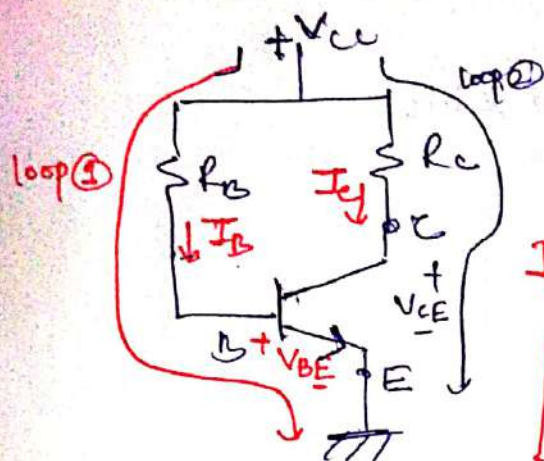 +VCC
loop②
loop①
RB
RC
IC
IB
C
+
VCE
B + VBE
E
I